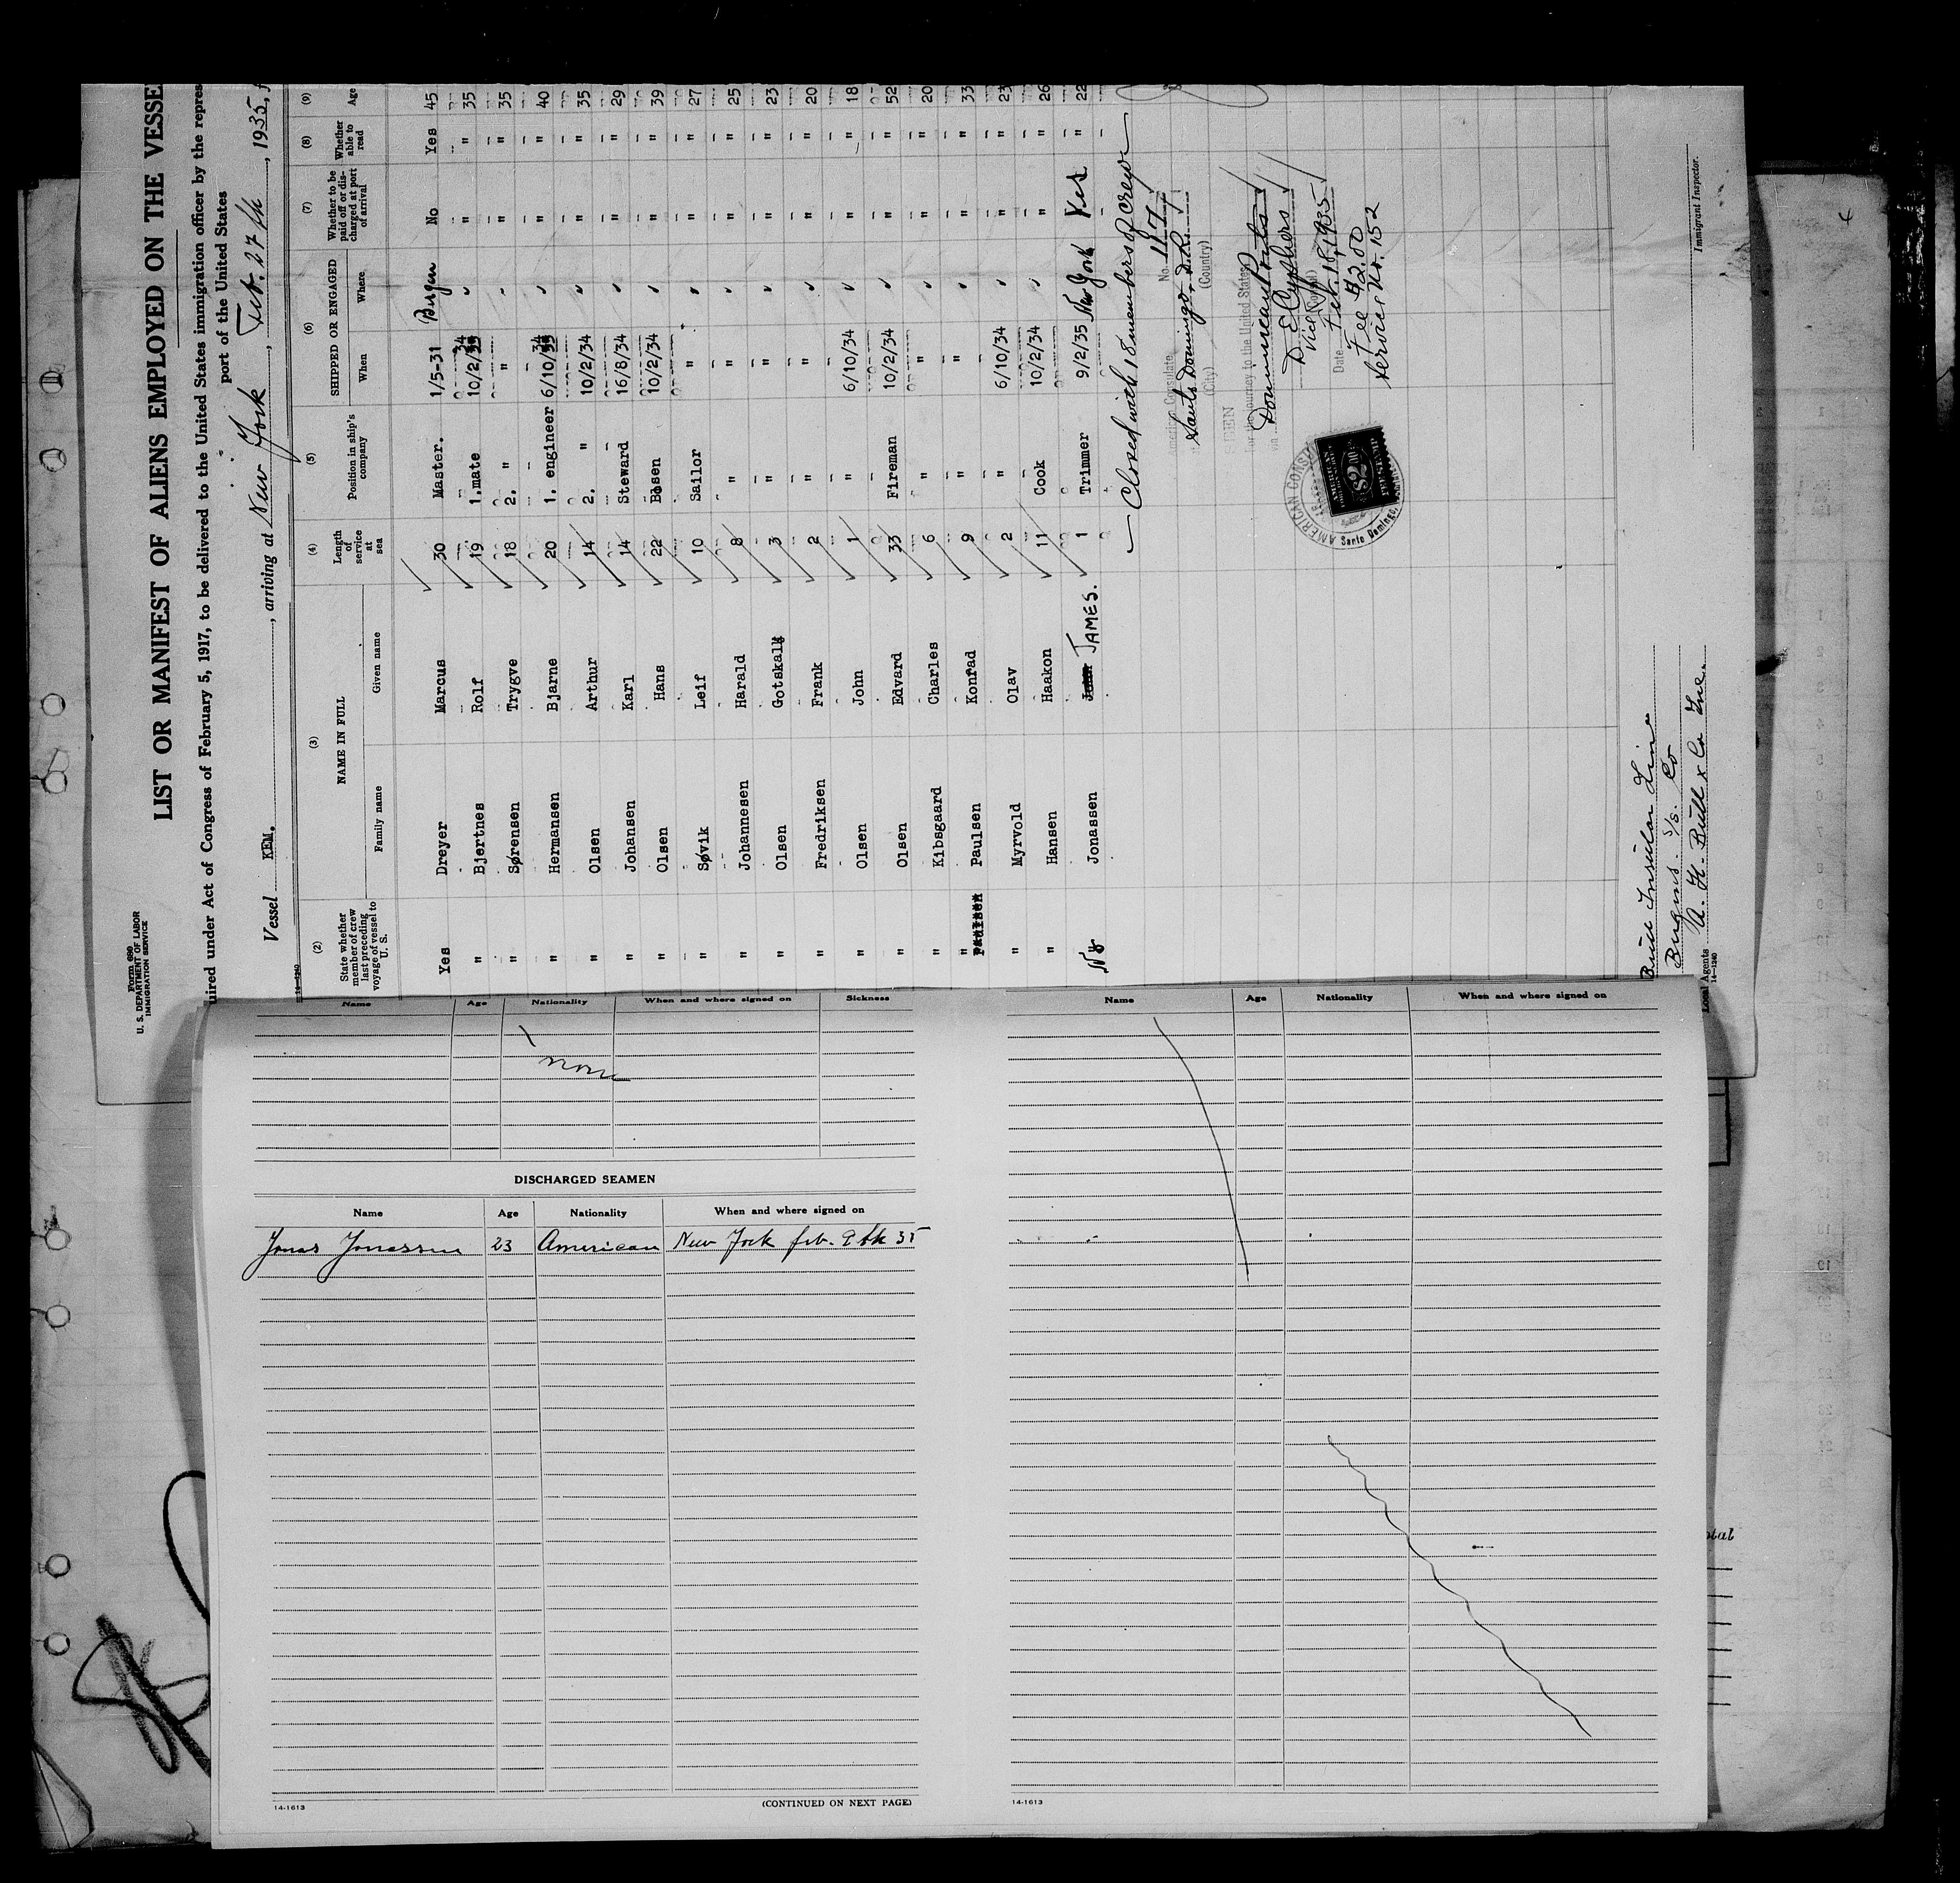 Form 689
U. S. DEPARTMENT OF LABOR
IMMIGRATION SERVICE
LIST OR MANIFEST OF ALIENS EMPLOYED ON THE VESSE
uired under Act of Congress of February 5, 1917, to be delivered to the United States immigration officer by the repres
port of the United States
Vessel KEM. , arriving at New York , Feb. 27th , 1935, f
14-1240
(2) (3) (4) (5) (6) (7) (8) (9)
State whether member of crew last preceding voyage of vessel to U. S. NAME IN FULL Family name Given name Length of service at sea Position in ship's company SHIPPED OR ENGAGED When Where Whether to be paid off or discharged at port of arrival Whether able to read Age
Yes Dreyer Marcus 30 Master. 1/5-31 Bergen No Yes 45
" Bjertnes Rolf 19 1.mate 10/2/34 " " " 35
" Sørensen Trygve 18 2. " " " " " 35
" Hermansen Bjarne 20 1. engineer 6/10/34 " " " 40
" Olsen Arthur 14 2. " 10/2/34 " " " 35
" Johansen Karl 14 Steward 16/8/34 " " " 29
" Olsen Hans 22 Bosen 10/2/34 " " " 39
" Søvik Leif 10 Sailor " " " " 27
" Johannesen Harald 8 " " " " " 25
" Olsen Gotskalk 3 " " " " " 23
" Fredriksen Frank 2 " " " " " 20
" Olsen John 1 " 6/10/34 " " " 18
" Olsen Edvard 33 Fireman 10/2/34 " " " 52
" Kibsgaard Charles 6 " " " " " 20
" Paulsen Konrad 9 " " " " " 33
" Myrvold Olav 2 " 6/10/34 " " " 23
" Hansen Haakon 11 Cook 10/2/34 " " " 26
No Jonassen JAMES. 1 Trimmer 9/2/35 New York Yes " 22
Closed with 18 members of crew
American Consulate No. 117
Santo Domingo, D.R.
(City) (Country)
SEEN
For the journey to the United States
via Dominican Ports
D. E. Cyphers
Vice Consul
Date Feb. 18, 1935
Fee $2.00
Service No. 152
AMERICAN CONSUL
Santo Domingo,
$2
Bull Insular Line
S/S. Co
A. H. Bull & Co Inc.
Local Agents
14-1240
Immigrant Inspector.
Name Age Nationality When and where signed on Sickness
none
DISCHARGED SEAMEN
Name Age Nationality When and where signed on
Jonas Jonassen 23 American New York feb. 9th 35
14-1613 (CONTINUED ON NEXT PAGE)
Name Age Nationality When and where signed on
14-1613
otal